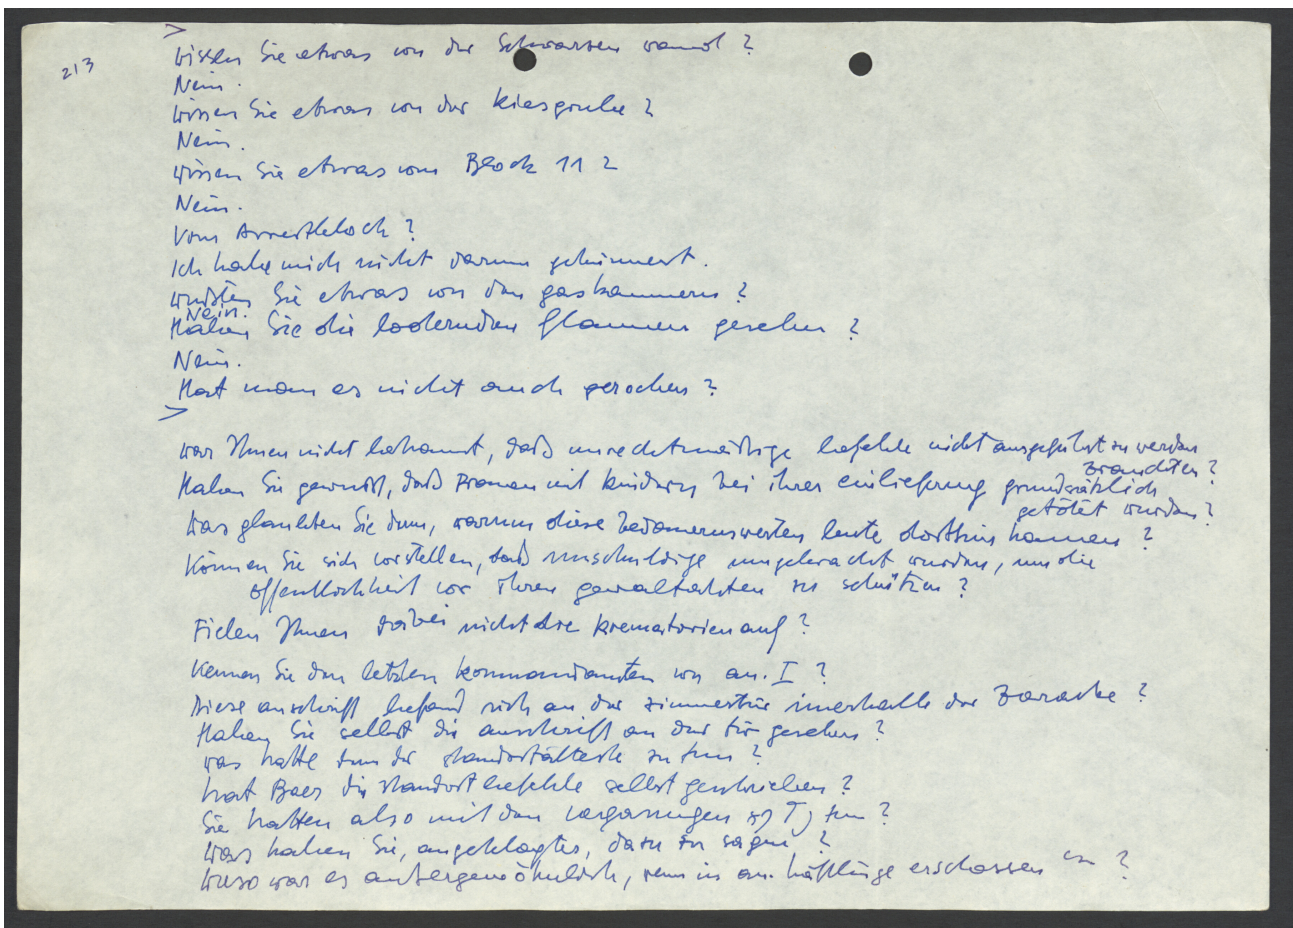 213
>
wissen Sie etwas von der Schwarzen wand?
Nein.
wissen Sie etwas von der kiesgrube?
Nein.
wissen Sie etwas vom Block 11?
Nein.
Vom Arrestblock?
Ich habe mich nicht darum gekümmert.
wußten Sie etwas von den gaskammern?
Nein.
Haben Sie die lodernden flammen gesehen?
Nein.
Hat man es nicht auch gerochen?
>
war Ihnen nicht bekannt, daß unrechtmäßige befehle nicht ausgeführt zu werden
brauchten?
Haben Sie gewußt, daß Frauen mit kindern bei ihrer einlieferung grundsätzlich
getötet wurden?
was glaubten Sie denn, warum diese bedauernswerten leute dorthin kamen?
Können Sie sich vorstellen, daß unschuldige umgebracht wurden, um die
öffentlichkeit vor ihren gewalttakten zu schützen?
Fielen Ihnen dabei nicht die krematorien auf?
kennen Sie den letzten kommandanten von au. I?
Diese anschrift befand sich an der zimmertür innerhalb der baracke?
Haben Sie selbst die anschrift an der tür gesehen?
was hatte denn der standortälteste zu tun?
hat Baer die standortbefehle selbst geschrieben?
Sie hatten also mit den vergasungen zu tun?
was haben Sie, angeklagter, dazu zu sagen?
wieso war es außergewöhnlich, wenn in au. häftlinge erschossen ?